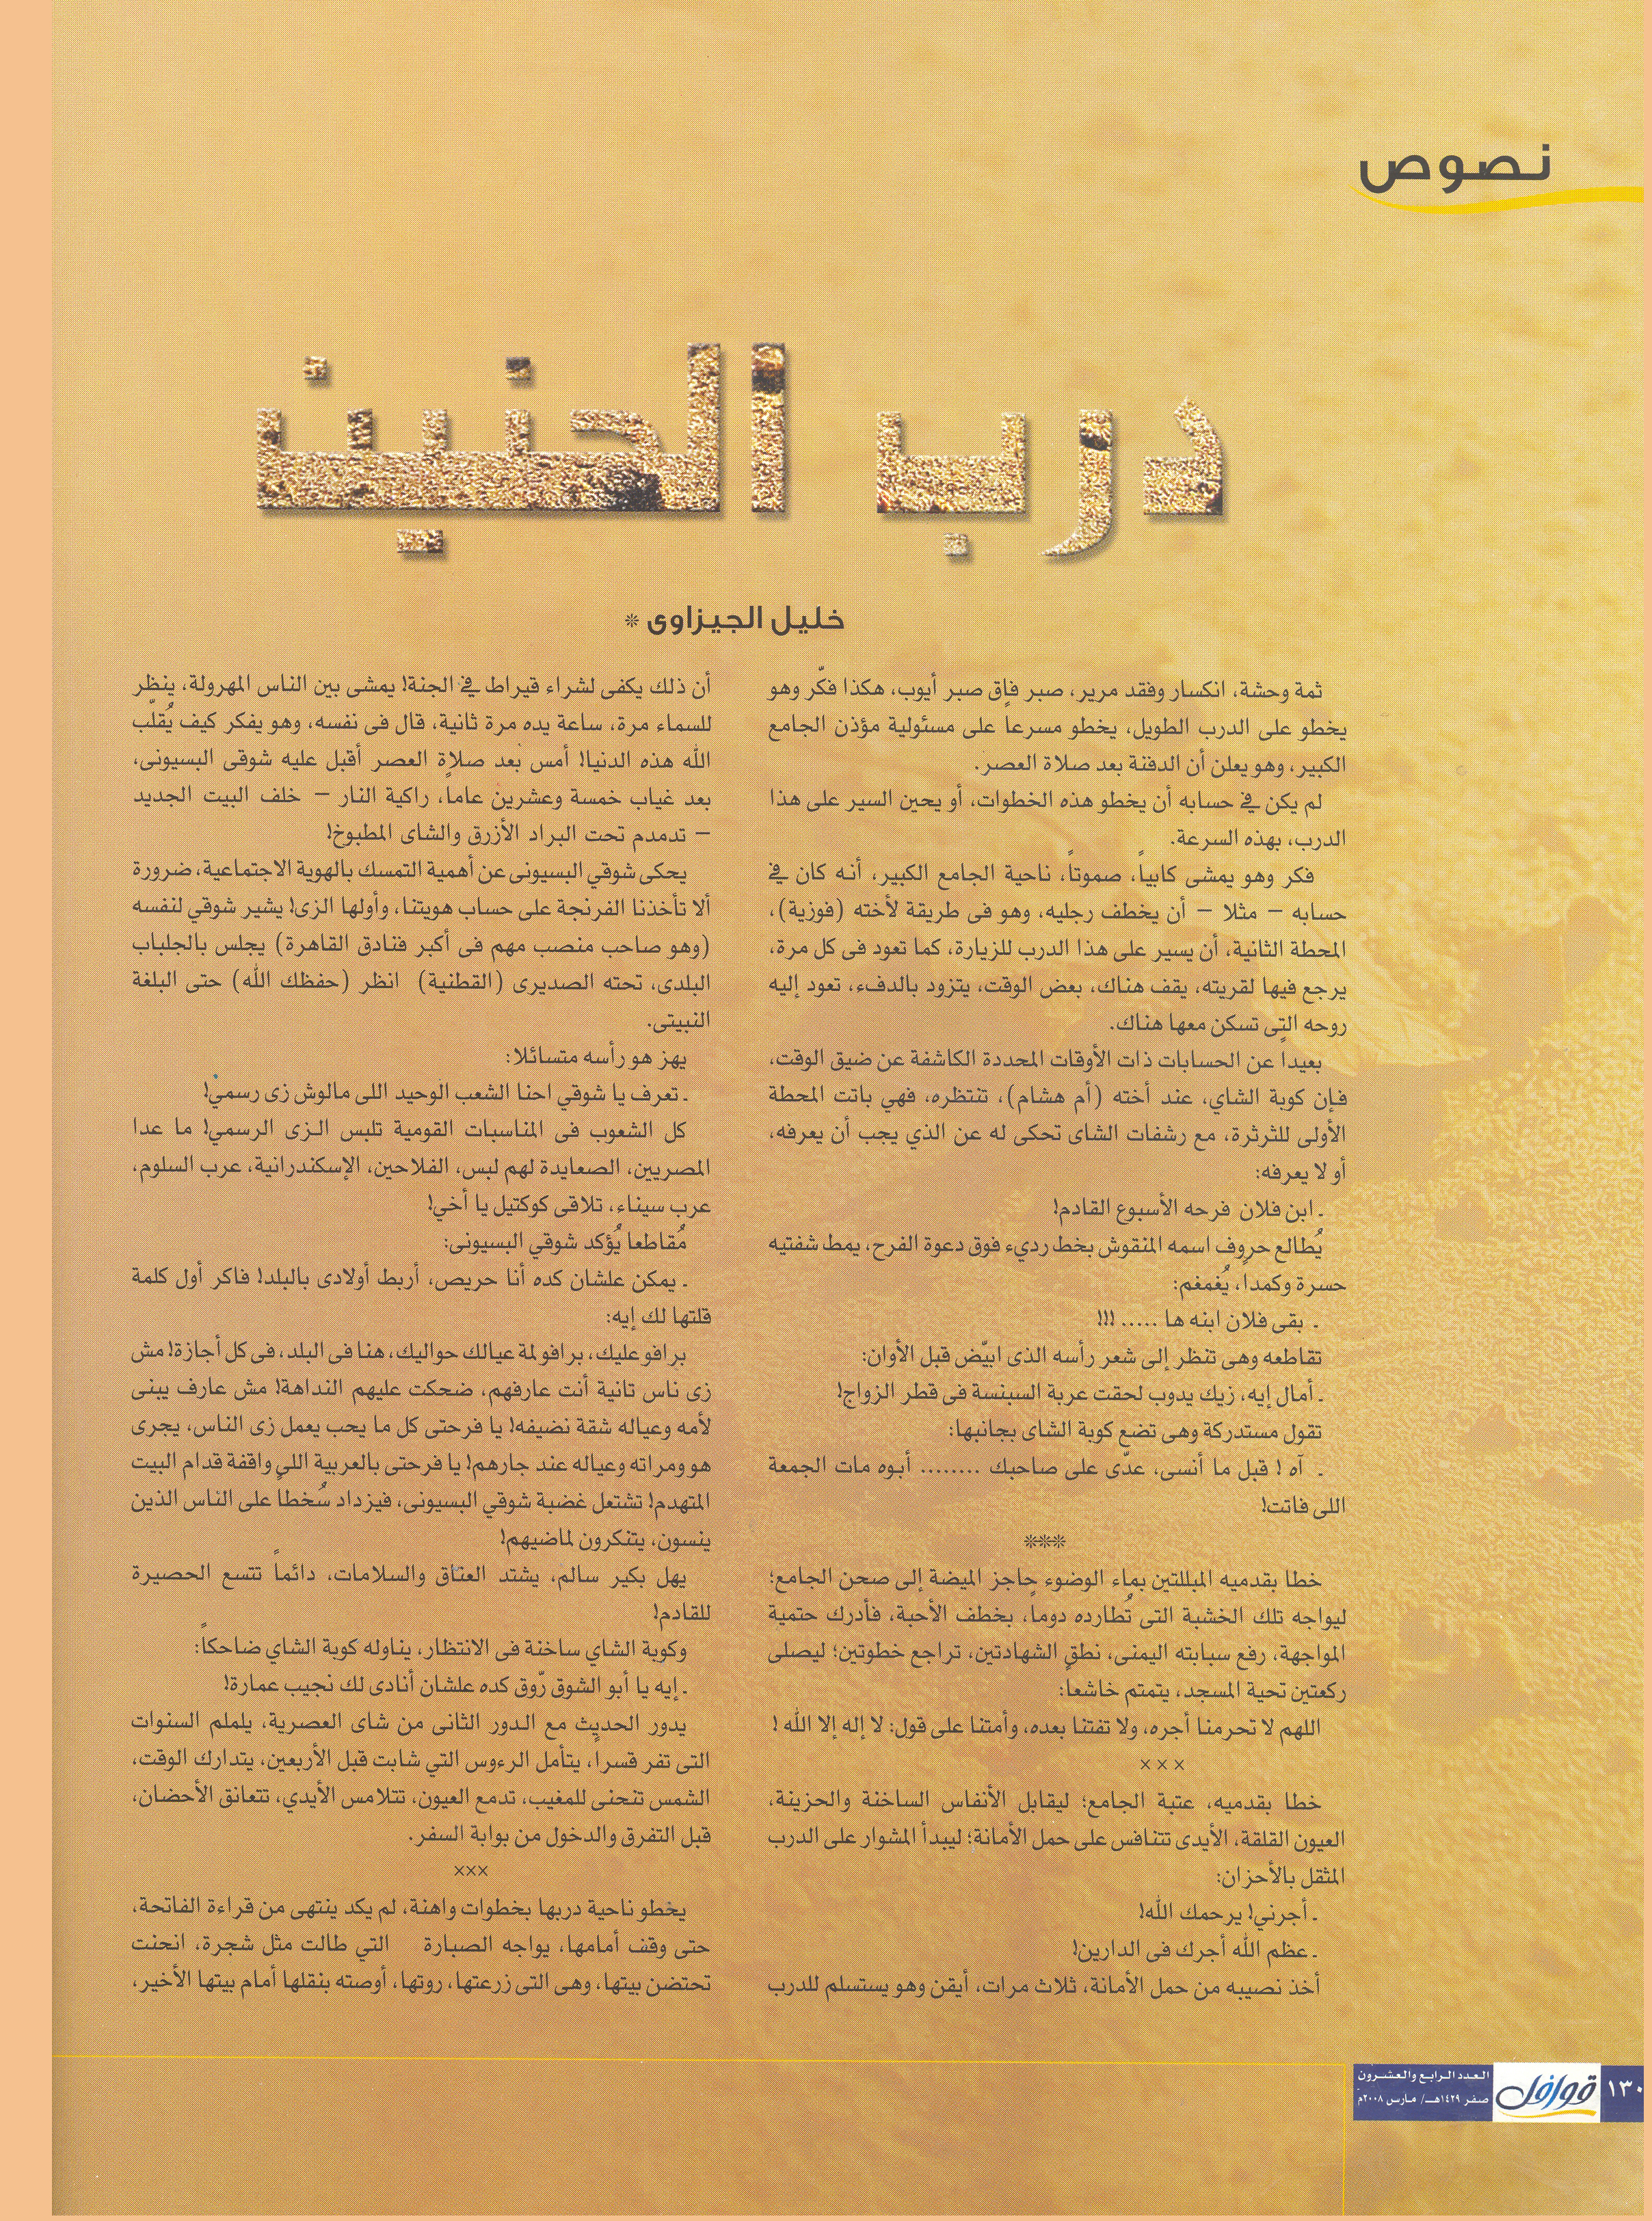 نصوص
درب الحنين
خليل الجيزاوى *
ثمة وحشة، انكسار وفقد مرير، صبر فاق صبر أيوب، هكذا فكّر وهو
يخطو على الدرب الطويل، يخطو مسرعاً على مسئولية مؤذن الجامع
الكبير، وهو يعلن أن الدفنة بعد صلاة العصر.
لم يكن في حسابه أن يخطو هذه الخطوات، أو يحين السير على هذا
الدرب، بهذه السرعة.
فكر وهو يمشى كابياً، صموتاً، ناحية الجامع الكبير، أنه كان في
حسابه – مثلا – أن يخطف رجليه، وهو فى طريقة لأخته (فوزية)،
المحطة الثانية، أن يسير على هذا الدرب للزيارة، كما تعود فى كل مرة،
يرجع فيها لقريته، يقف هناك، بعض الوقت، يتزود بالدفء، تعود إليه
روحه التى تسكن معها هناك.
بعيداً عن الحسابات ذات الأوقات المحددة الكاشفة عن ضيق الوقت،
فإن كوبة الشاي، عند أخته (أم هشام)، تنتظره، فهي باتت المحطة
الأولى للثرثرة، مع رشفات الشاى تحكى له عن الذي يجب أن يعرفه،
أو لا يعرفه:
ـ ابن فلان فرحه الأسبوع القادم!
يُطالع حروف اسمه المنقوش بخط رديء فوق دعوة الفرح، يمط شفتيه
حسرة وكمداً، يُغمغم:
ـ بقى فلان ابنه ها ..... !!!
تقاطعه وهى تنظر إلى شعر رأسه الذى ابيّض قبل الأوان:
ـ أمال إيه، زيك يدوب لحقت عربة السبنسة فى قطر الزواج!
تقول مستدركة وهى تضع كوبة الشاى بجانبها:
ـ آه ! قبل ما أنسى، عدّى على صاحبك ........ أبوه مات الجمعة
اللى فاتت!
***
خطا بقدميه المبللتين بماء الوضوء حاجز الميضة إلى صحن الجامع؛
ليواجه تلك الخشبة التى تُطارده دوماً، بخطف الأحبة، فأدرك حتمية
المواجهة، رفع سبابته اليمنى، نطق الشهادتين، تراجع خطوتين؛ ليصلى
ركعتين تحية المسجد، يتمتم خاشعاً:
اللهم لا تحرمنا أجره، ولا تفتنا بعده، وأمتنا على قول: لا إله إلا الله !
× × ×
خطا بقدميه، عتبة الجامع؛ ليقابل الأنفاس الساخنة والحزينة،
العيون القلقة، الأيدى تتنافس على حمل الأمانة؛ ليبدأ المشوار على الدرب
المثقل بالأحزان:
ـ أجرني! يرحمك الله!
ـ عظم الله أجرك فى الدارين!
أخذ نصيبه من حمل الأمانة، ثلاث مرات، أيقن وهو يستسلم للدرب
أن ذلك يكفى لشراء قيراط في الجنة! يمشى بين الناس المهرولة، ينظر
للسماء مرة، ساعة يده مرة ثانية، قال فى نفسه، وهو يفكر كيف يُقلّب
الله هذه الدنيا! أمس بعد صلاة العصر أقبل عليه شوقى البسيونى،
بعد غياب خمسة وعشرين عاماً، راكية النار – خلف البيت الجديد
– تدمدم تحت البراد الأزرق والشاى المطبوخ!
يحكى شوقي البسيونى عن أهمية التمسك بالهوية الاجتماعية، ضرورة
ألا تأخذنا الفرنجة على حساب هويتنا، وأولها الزى! يشير شوقي لنفسه
(وهو صاحب منصب مهم فى أكبر فنادق القاهرة) يجلس بالجلباب
البلدى، تحته الصديرى (القطنية) انظر (حفظك الله) حتى البلغة
النبيتى.
يهز هو رأسه متسائلا:
ـ تعرف يا شوقي احنا الشعب الوحيد اللى مالوش زى رسمي!
كل الشعوب فى المناسبات القومية تلبس الزى الرسمي! ما عدا
المصريين، الصعايدة لهم لبس، الفلاحين، الإسكندرانية، عرب السلوم،
عرب سيناء، تلاقى كوكتيل يا أخي!
مُقاطعا يُؤكد شوقي البسيونى:
ـ يمكن علشان كده أنا حريص، أربط أولادى بالبلد! فاكر أول كلمة
قلتها لك إيه:
برافو عليك، برافو لمة عيالك حواليك، هنا فى البلد، فى كل أجازة! مش
زى ناس تانية أنت عارفهم، ضحكت عليهم النداهة! مش عارف يبنى
لأمه وعياله شقة نضيفه! يا فرحتى كل ما يحب يعمل زى الناس، يجرى
هو ومراته وعياله عند جارهم! يا فرحتى بالعربية اللى واقفة قدام البيت
المتهدم! تشتعل غضبة شوقي البسيونى، فيزداد سُخطا على الناس الذين
ينسون، يتنكرون لماضيهم!
يهل بكير سالم، يشتد العناق والسلامات، دائماً تتسع الحصيرة
للقادم!
وكوبة الشاي ساخنة فى الانتظار، يناوله كوبة الشاي ضاحكاً:
ـ إيه يا أبو الشوق رّوق كده علشان أنادى لك نجيب عمارة!
يدور الحديث مع الدور الثانى من شاى العصرية، يلملم السنوات
التى تفر قسراً، يتأمل الرءوس التي شابت قبل الأربعين، يتدارك الوقت،
الشمس تنحنى للمغيب، تدمع العيون، تتلامس الأيدي، تتعانق الأحضان،
قبل التفرق والدخول من بوابة السفر.
×××
يخطو ناحية دربها بخطوات واهنة، لم يكد ينتهى من قراءة الفاتحة،
حتى وقف أمامها، يواجه الصبارة التي طالت مثل شجرة، انحنت
تحتضن بيتها، وهى التى زرعتها، روتها، أوصته بنقلها أمام بيتها الأخير،
١٣٠
قوافل
العدد الرابع والعشرون
صفر ١٤٢٩هـ/ مارس ٢٠٠٨م